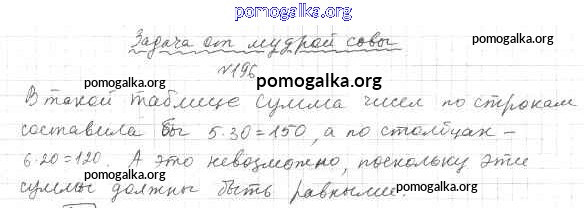 pomogalka.org
Задача от мудрой совы
pomogalka.org
pomogalka.org
№196
pomogalka.org
В такой таблице сумма чисел по строкам
pomogalka.org
pomogalka.org
составила бы 5·30=150, а по столбцам –
6·20=120. А это невозможно, поскольку эти
pomogalka.org
pomogalka.org
суммы должны быть равными.
pomogalka.org